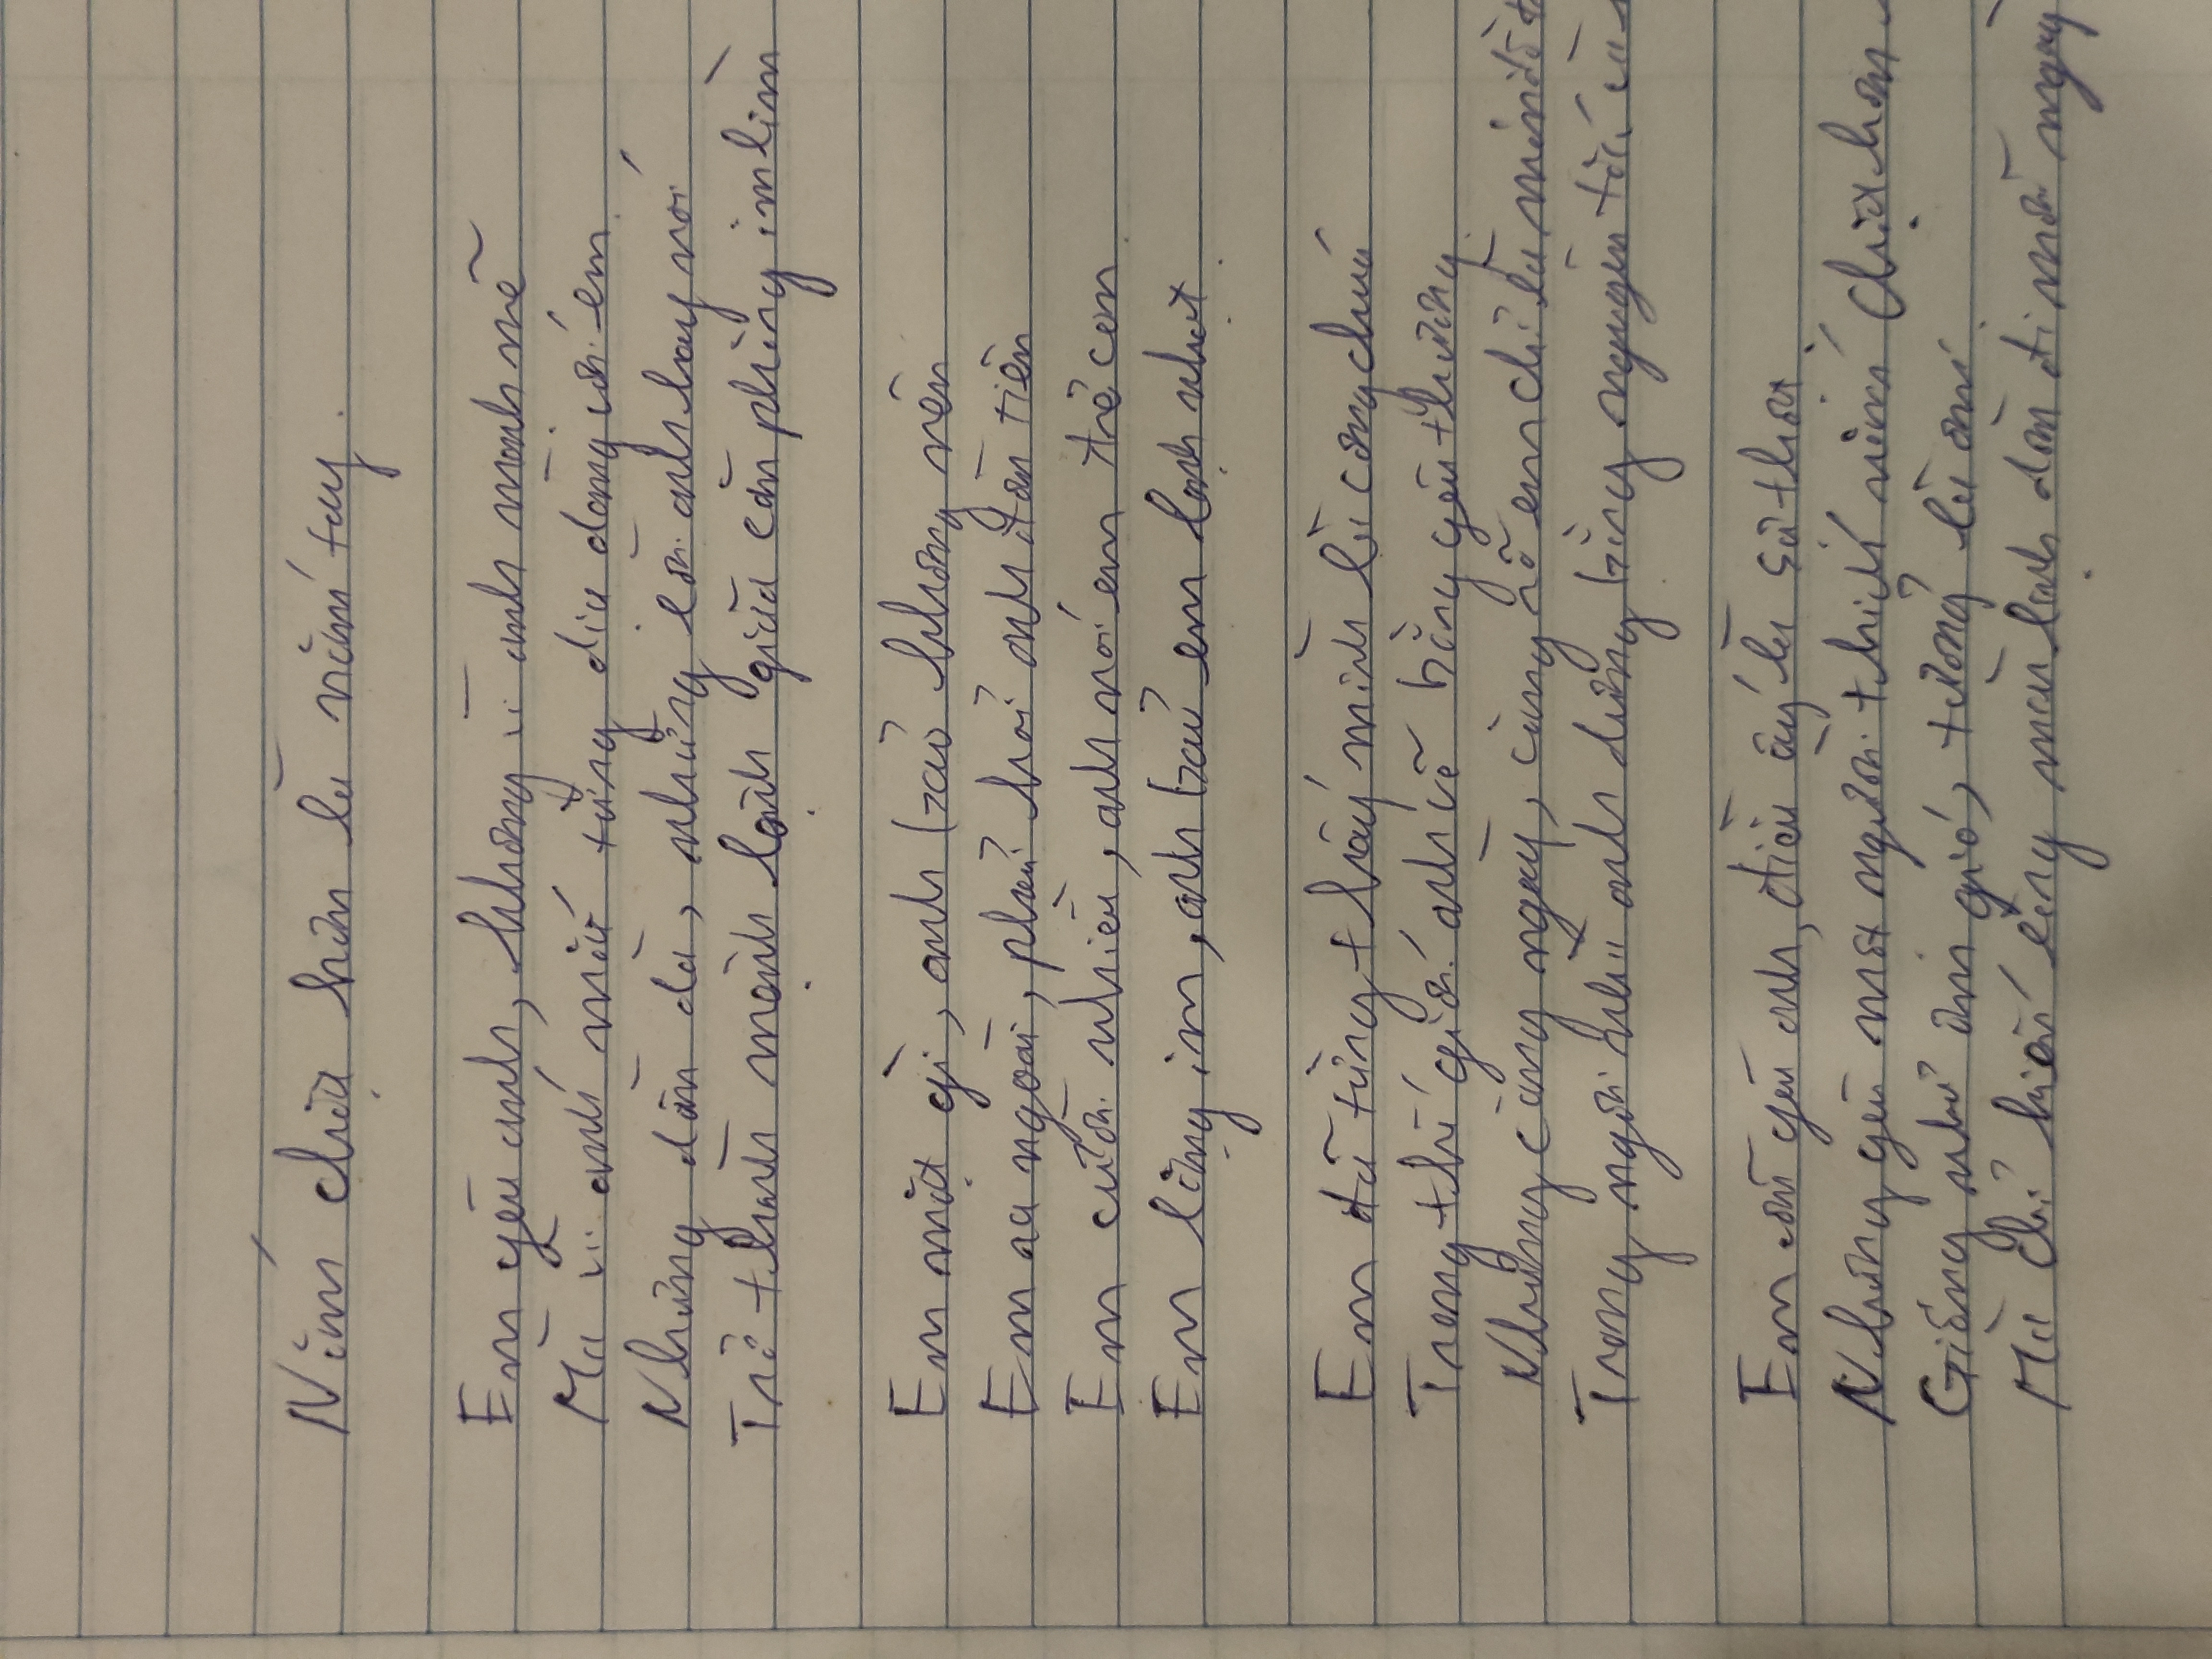 Nắm chặt hơn là nắm tay.
Em yêu anh, không vì anh mạnh mẽ
Mà vì anh mắt từng dịu dàng với em.
Nhưng dần dà, những lời anh hay nói
Trở thành mệnh lệnh giữa căn phòng im lìm
Em mặc gì, anh bảo không nên
Em ra ngoài, phải hỏi anh đầu tiên
Em cười nhiều, anh nói em trẻ con.
Em lặng im, anh bảo em lạnh nhạt.
Em đã từng thấy mình là công chúa
Trong thế giới anh vẽ bằng yêu thương.
Nhưng càng ngày, càng rõ em chỉ là món đồ
Trong ngôi nhà anh dựng bằng nguyên tắc và
Em vẫn yêu anh, điều ấy là sự thật.
Nhưng yêu một người thích nắm chặt hơn
Giống như ôm gió, tưởng là ấm.
Mà chỉ khiến lòng mau lạnh dần đi mỗi ngày